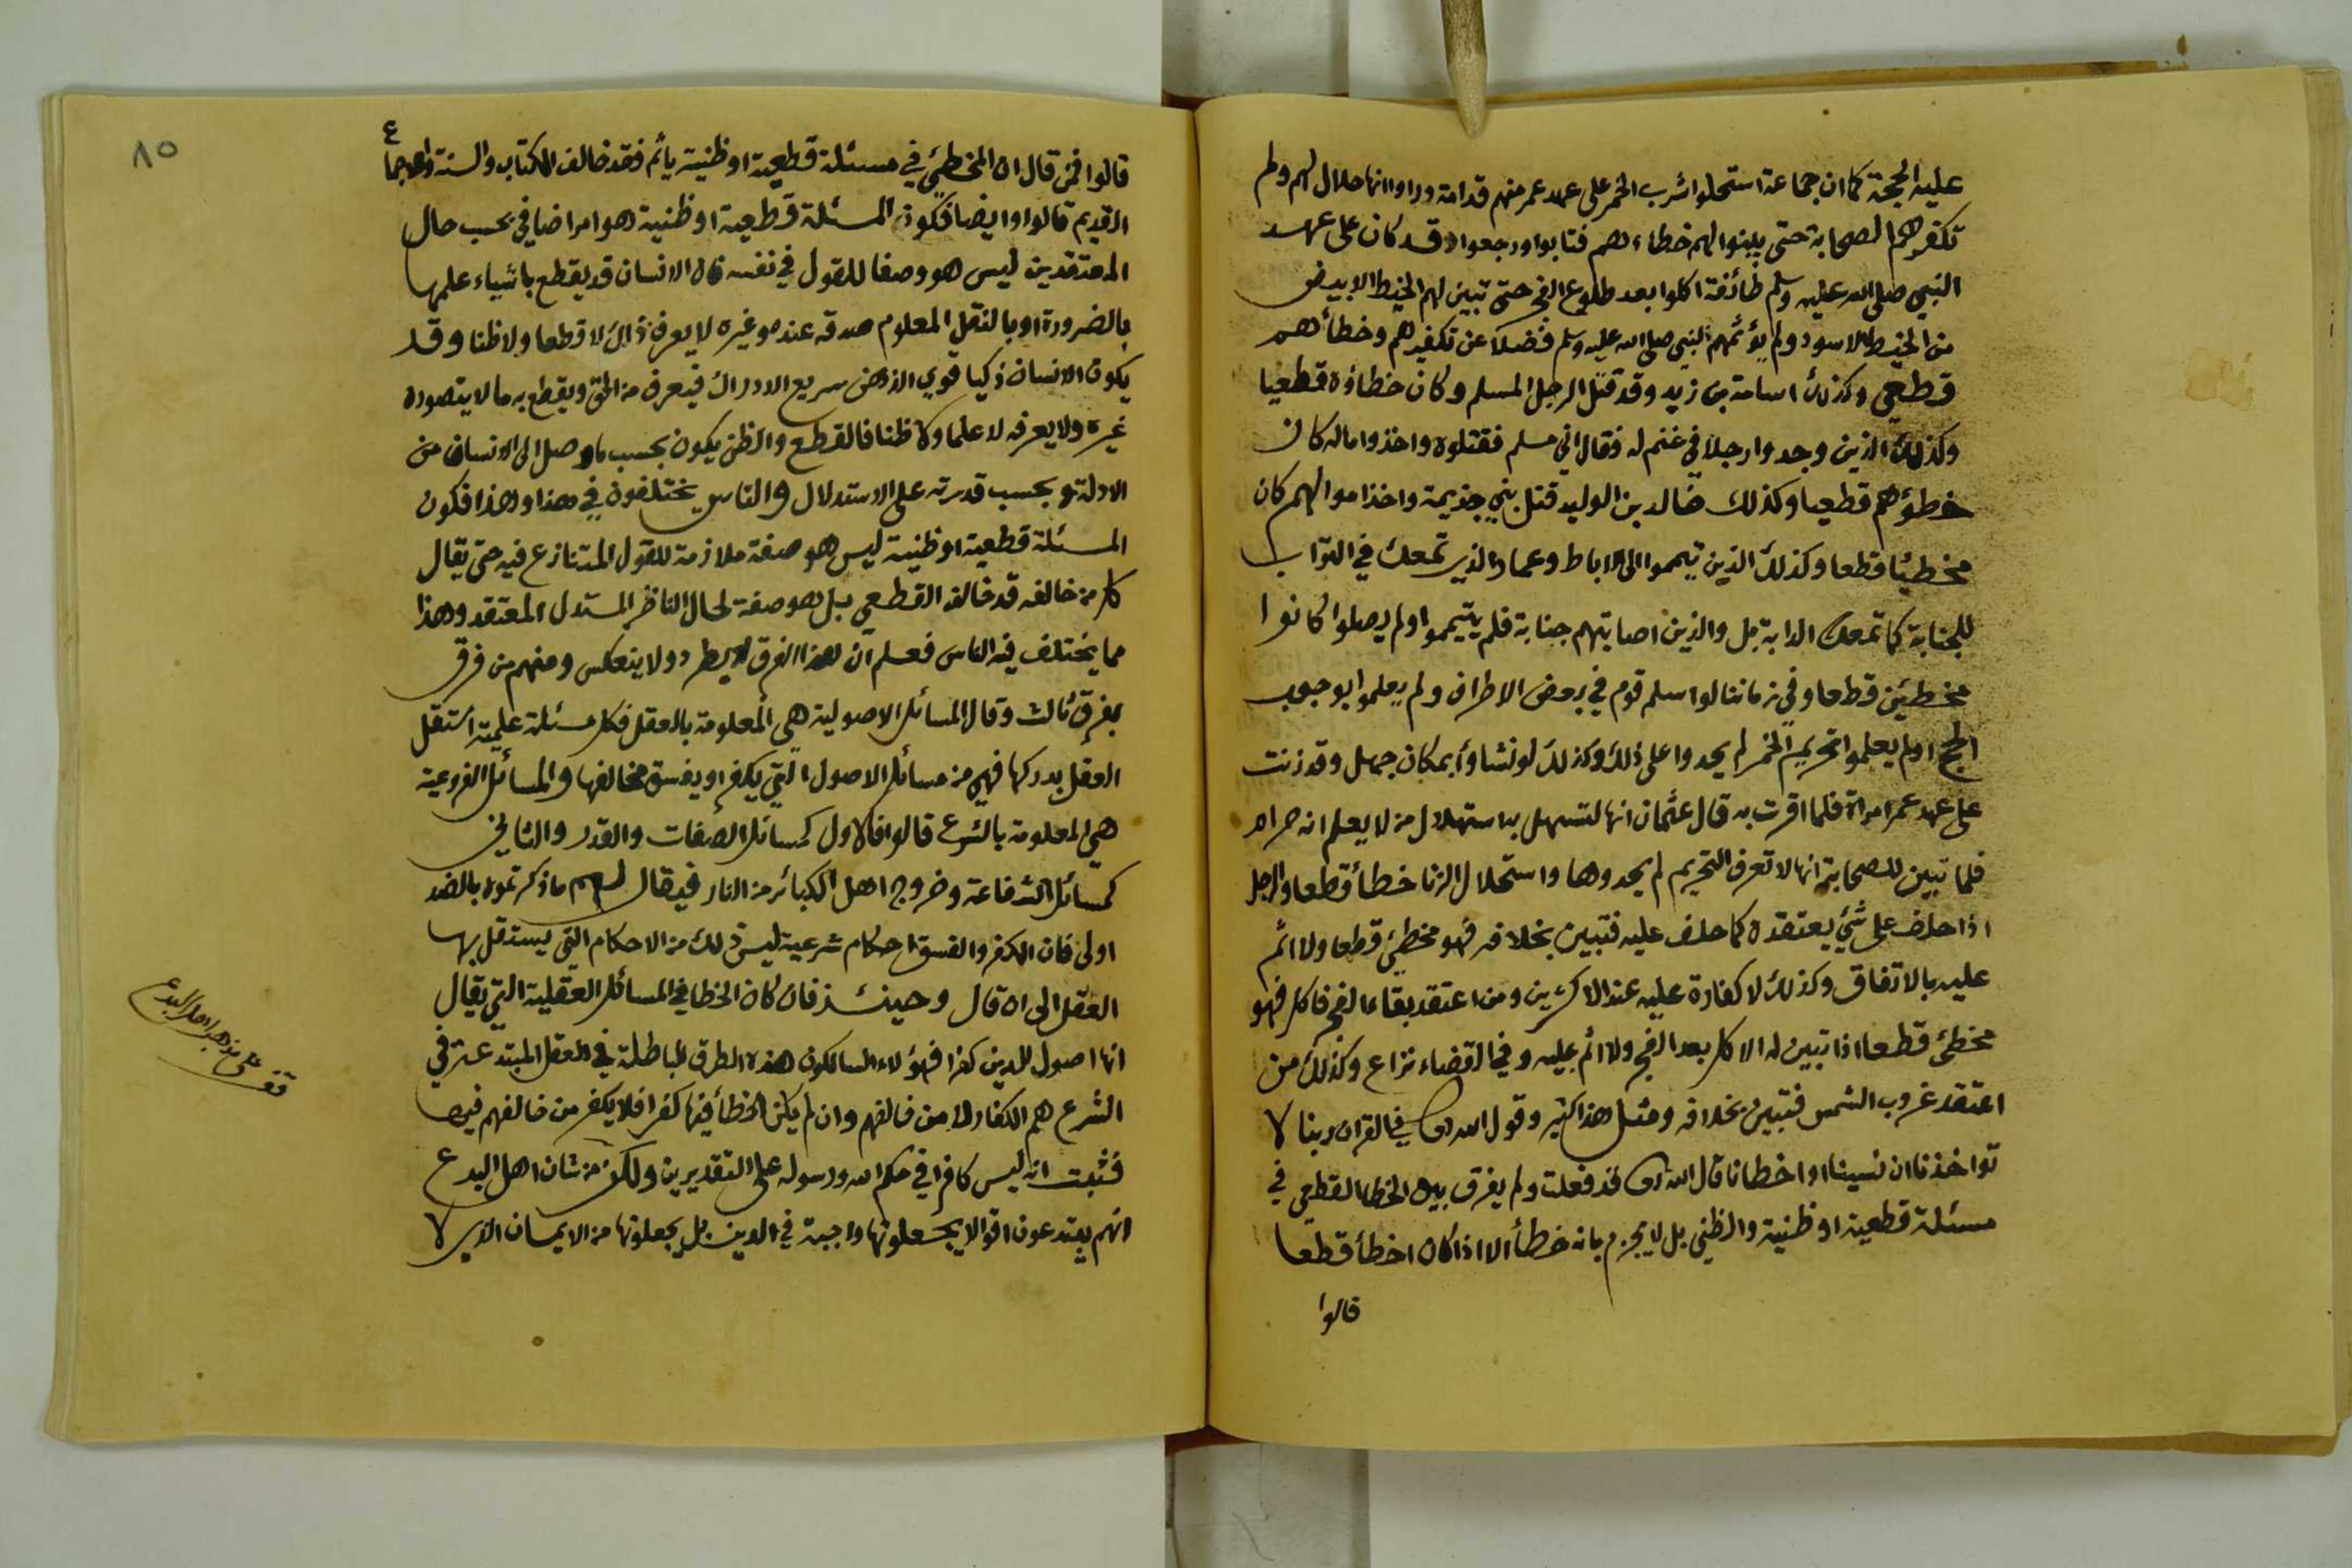 عليه الحجة كما ان جماعة استحلوا شرب الخمر على عهد عمر منهم قدامة وراوا انها حلال لهم ولم
تكفرهم الصحابة حتى بينوا لهم خطاءهم فتابوا ورجعوا وقد كان على عهد
النبي صلى الله عليه وسلم طائفة اكلوا بعد طلوع الفجر حتى تبين لهم الخيط الابيض
من الخيط الاسود ولم يؤثمهم النبي صلى الله عليه وسلم فضلا عن تكفيرهم وخطأهم
قطعي وكذلك اسامة بن زيد وقد قتل الرجل المسلم وكان خطاؤه قطعيا
وكذلك الذين وجدوا رجلا في غنم له فقال اني مسلم فقتلوه واخذوا ماله كان
خطؤهم قطعيا وكذلك خالد بن الوليد قتل بني جذيمة واخذ اموالهم كان
مخطيئا قطعا وكذلك الذين تيمموا الى الاباط وعمار الذي تمعك في التراب
للجنابة كما تمعك الدابة بل والذين اصابتهم جنابة فلم يتيمموا ولم يصلوا كانوا
مخطيئن قطعا وفي زماننا لو اسلم قوم في بعض الاطراف ولم يعلموا بوجوب
الحج او لم يعلموا تحريم الخمر لم يحدوا على ذلك وكذلك لو نشاوأ بمكان جهل وقد زنت
على عهد عمر امراة فلما اقرت به قال عثمان انها لتستهل به استهلال من لا يعلم انه حرام
فلما تبين للصحابة انها لا تعرف التحريم لم يحدوها واستحلال الزنا خطأ قطعا والرجل
اذا حلف على شئ يعتقده كما حلف عليه فتبين بخلافه فهو مخطئ قطعا ولا اثم
عليه بالاتفاق وكذلك لا كفارة عليه عند الاكثرين ومن اعتقد بقاء الفجر فاكل فهو
مخطئ قطعا اذا تبين له الاكل بعد الفجر ولا اثم عليه وفي القضاء نزاع وكذلك من
اعتقد غروب الشمس فتبين بخلافه ومثل هذا كثير وقول الله تعالى في القران ربنا لا
تواخذنا ان نسينا او اخطانا قال الله تعالى قد فعلت ولم يفرق بين الخطا القطعي في
مسئلة قطعية او ظنية والظني بل لا يجزم بانه خطأ الا اذا كان اخطأ قطعا
قالوا
٨٥
قالوا فمن قال ان المخطئ في مسئلة قطعية او ظنية يأثم فقد خالف الكتاب والسنة والاجماع
القديم قالوا وايضا فكون المسئلة قطعية او ظنية هو امر اضافي بحسب حال
المعتقدين ليس هو وصفا للقول في نفسه فان الانسان قد يقطع باشياء علمها
بالضرورة او بالنقل المعلوم صدقه عنده وغيره لا يعرف ذلك لا قطعا ولا ظنا وقد
يكون الانسان ذكيا قوي الذهن سريع الادراك فيعرف من الحق ويقطع به ما لا يتصوره
غيره ولا يعرفه لا علما ولا ظنا فالقطع والظن يكون بحسب ما وصل الى الانسان من
الادلة وبحسب قدرته على الاستدلال والناس يختلفون في هذا وهذا فكون
المسئلة قطعية او ظنية ليس هو صفة ملازمة للقول المتنازع فيه حتى يقال
كل من خالفه قد خالف القطعي بل هو صفة لحال الناظر المستدل المعتقد وهذا
مما يختلف فيه الناس فعلم ان هذا الفرق لا يطرد ولا ينعكس ومنهم من فرق
بفرق ثالث وقال المسائل الاصولية هي المعلومة بالعقل فكل مسئلة علمية استقل
العقل بدركها فهي من مسائل الاصول التي يكفر او يفسق مخالفها والمسائل الفروعية
هي المعلومة بالشرع قالوا فالاول كمسائل الصفات والقدر والثاني
كمسائل الشفاعة وخروج اهل الكبائر من النار فيقال لهم ما ذكرتموه بالضد
اولى فان الكفر والفسق احكام شرعية ليس ذلك من الاحكام التي يستقل بها
العقل الى ان قال وحينئذ فان كان الخطا في المسائل العقلية التي يقال
انها اصول الدين كفرا فهؤلاء السالكون هذه الطرق الباطلة في العقل المبتدعة في
الشرع هم الكفار لا من خالفهم وان لم يكن الخطأ فيها كفرا فلا يكفر من خالفهم فيها
فثبت انه ليس كافرا في حكم الله ورسوله على التقديرين ولكن من شان اهل البدع
انهم يبتدعون اقوالا يجعلونها واجبة في الدين بل يجعلونها من الايمان الذي لا
قف على مذهب اهل البدع